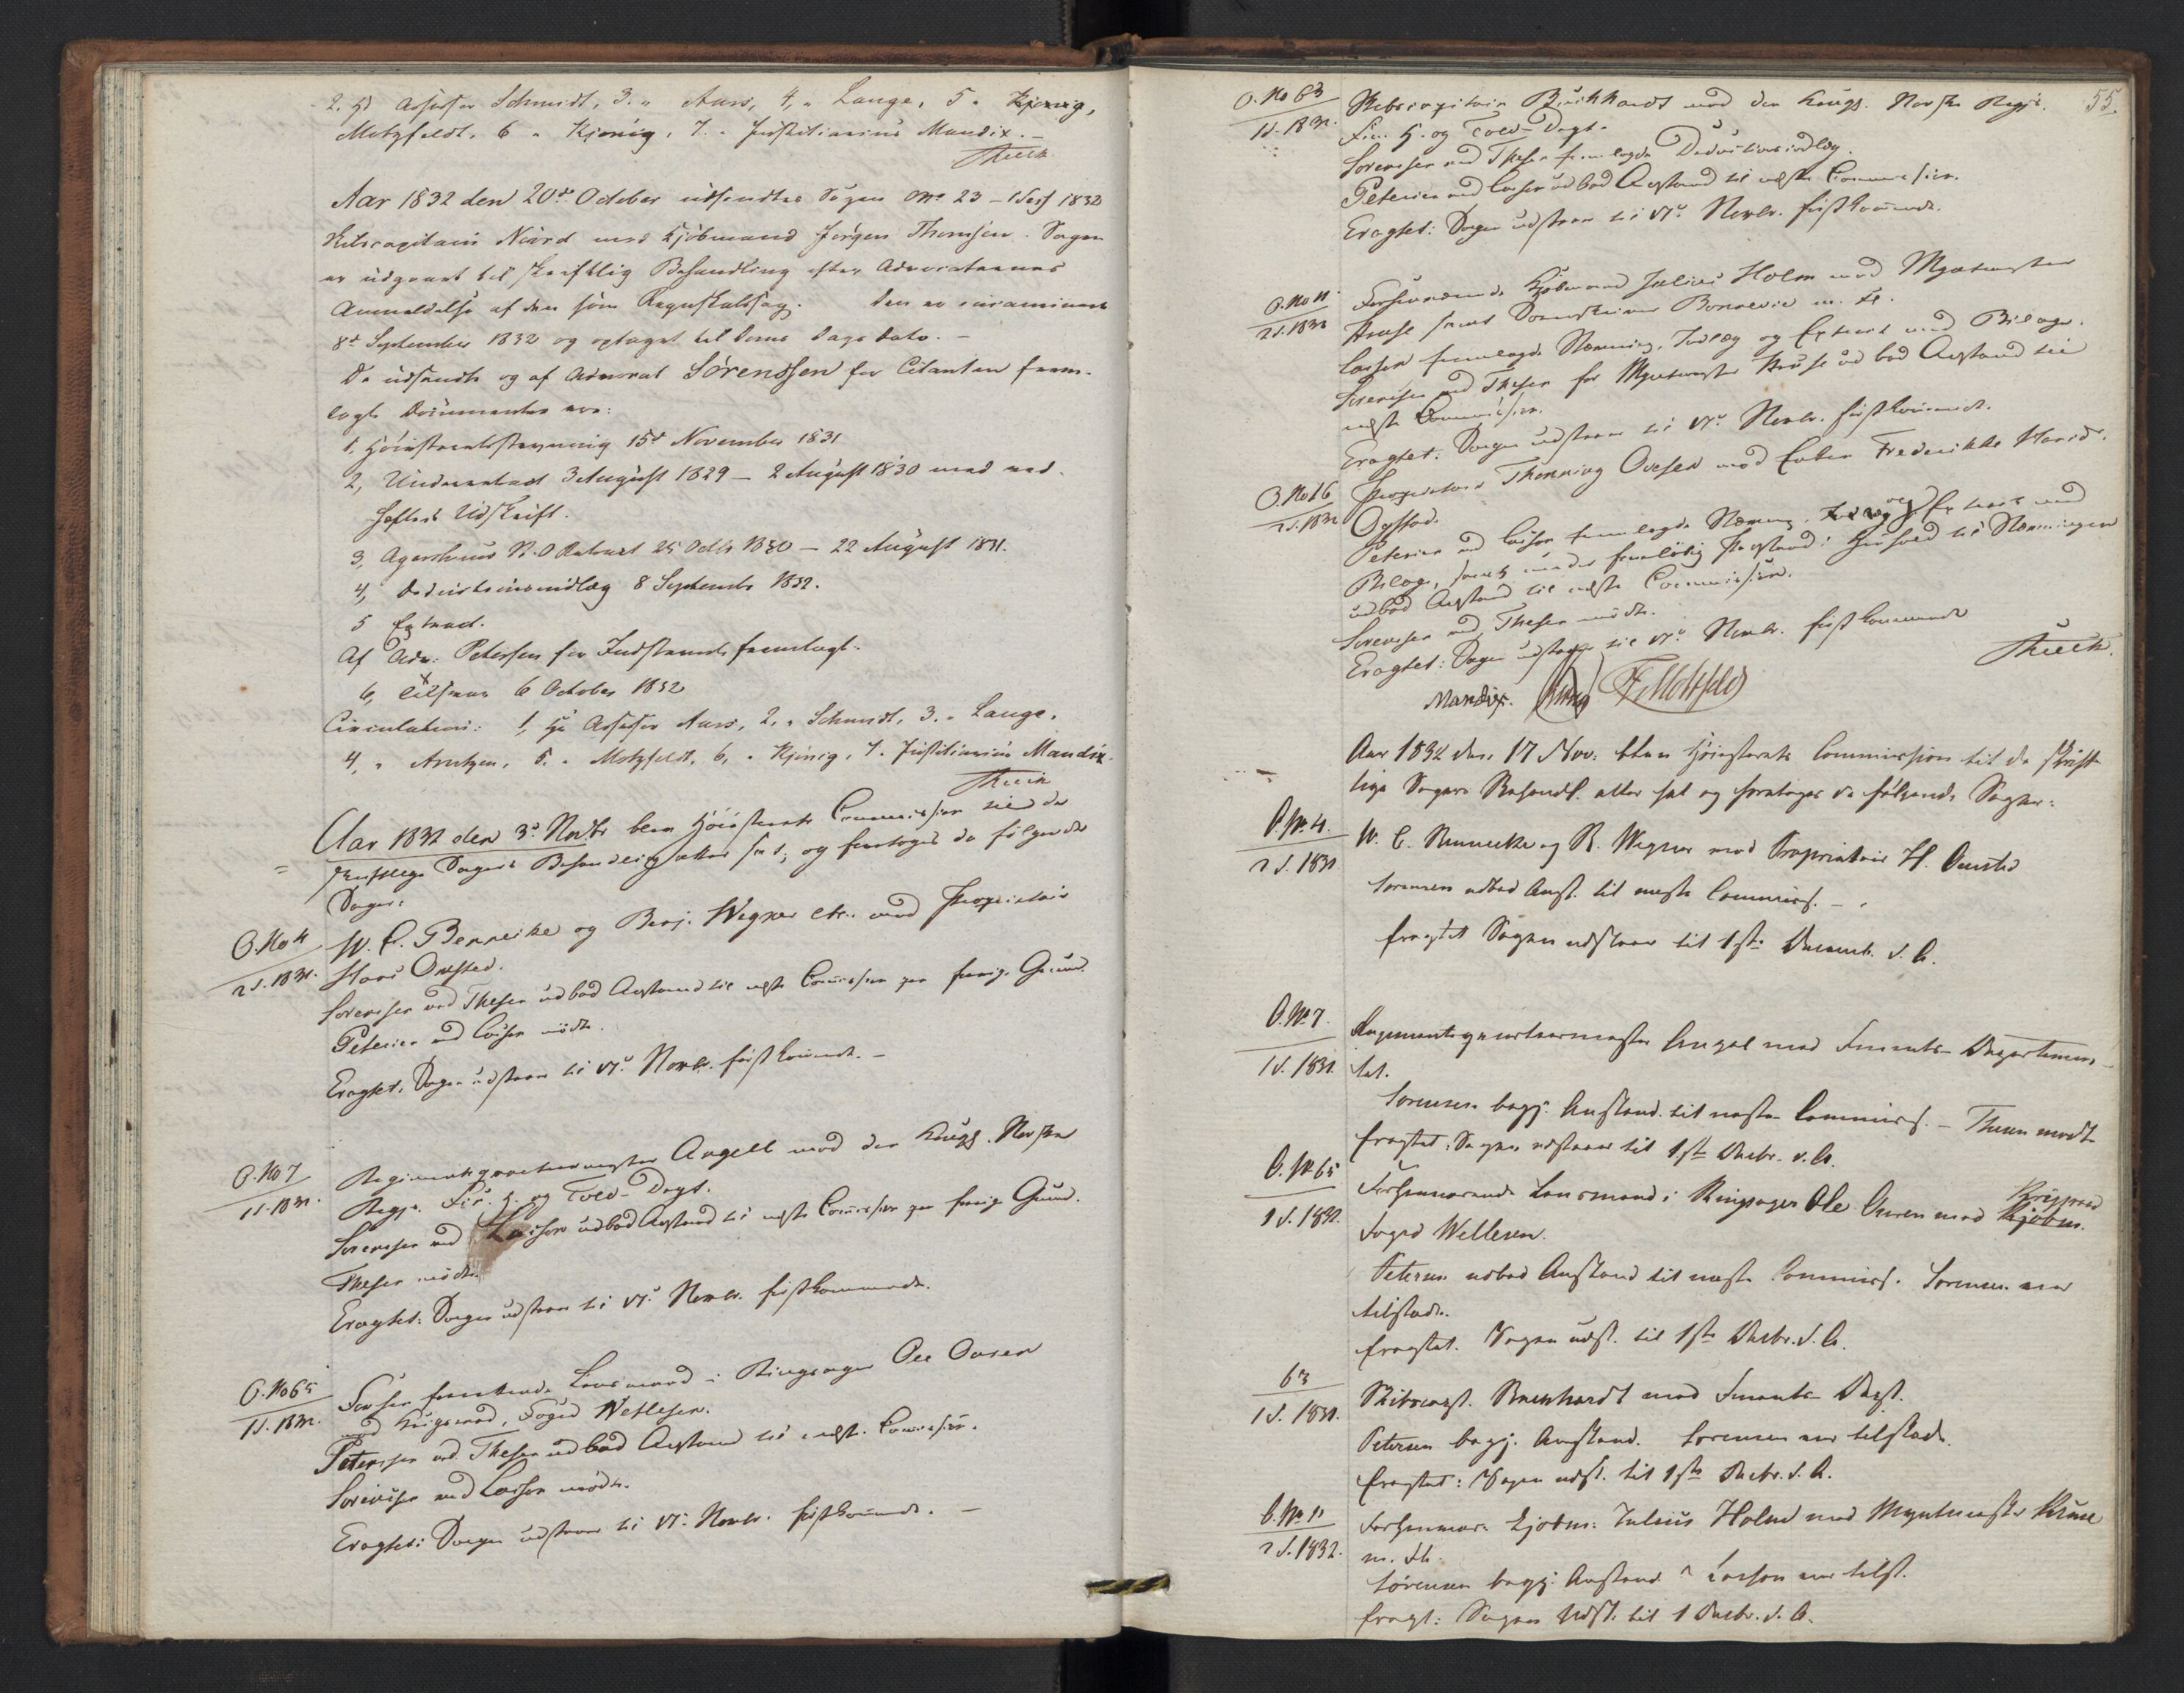 2. Hr Assessor Schmidt, 3. " Aars, 4, " Lange, 5 "
Motzfeldt, 6 " Kjønig, 7. " Justitiarius Mandix. -
Aar 1832 den 20de October udsendtes Sagen No 23 - 1 Sess 1832
mod Kjøbmand Jørgen Thomsen. Sagen
er udgaaet til skriftlig Behandling efter Advocaternes
Anmeldelse af den som Regnskabssag. Den er
8de September 1832 og optaget til Doms Dags Dato. -
De udsendte og af Advocat Sørenssen for Citanten frem-
lagte Documenter ere:
1, Høiesteretsstævning 15de November 1831
2, Underretsact 3 August 1829 - 2 August 1830 med ved-
heftet Udskrift.
3, Agershuus St. O Retsact 25 Octbr 1830 - 22 August 1831.
4, Deductionsindlæg 8 Septembr 1832.
5 Extract.
Af Adv: Petersen for Indstævnte fremlagt:
6, Tilsvar 6 October 1832
Circulation: 1, Hr Assessor Aars, 2, " Schmidt, 3. " Lange,
4, " Arntzen, 5. " Motzfeldt, 6, " Kjønig, 7. Justitiarius Mandix.
Aar 1832 den 3de Novbr blev Høiesterets Commission til de
skriftlige Sagers Behandling atter sat, og foretoges da følgende
Sager:
O. No 4
2 S. 1831.
W. C. Bennecke og Benj. Wegner etc. mod Proprietair
Hans Onsted.
Sørensen ved Thesen udbad Anstand til næste Commission paa forrige Grund.
Petersen ved Larsen mødte.
Eragtet: Sagen udstaaer til 17de Novbr. førstkommende. -
O. No 7
1 S. 1831.
Regimentsqvarteermester Angell mod den kongl. Norske
Regjs. Fin. H. og Told-Dept.
Sørensen ved Larsen udbad Anstand til næste Commission paa forrige Grund.
Thesen mødte.
Eragtet: Sagen udstaaer til 17de Novbr. førstkommende.
O. No 65
1 S. 1832.
Lensmand i Ringsager Ole Onsen
mod Krigsraad, Foged Wetlesen.
Petersen ved Thesen udbad Anstand til næste Commission.
Sørensen ved Larsen mødte.
Eragtet: Sagen udstaaer til 17de Novbr. førstkommende. -
55.
O. No 63
1 S. 1831.
Ritscapitain Burchhardt mod den kongl. Norske Regjs.
Fin. H. og Told-Dept.
Sørensen ved Thesen fremlagde Deductionsindlæg.
Petersen ved Larsen udbad Anstand til næste Commission.
Eragtet: Sagen udstaaer til 17de Novbr. førstkommende.
O. No 11
2 S. 1832
Forhenværende Kjøbmand Julius Holm mod Myntmester
Kruse samt Bonnevie m. Fl.
Larsen fremlagde Stævning, Indlæg og Extract med Bilage.
Sørensen ved Thesen for Myntmester Kruse udbad Anstand til
næste Commission.
Eragtet: Sagen udstaaer til 17de Novbr. førstkommende.
O. No 16
2 S. 1832
Proprietair Thorning Ovesen mod Enken Frederikke
Opstad.
Petersen ved Larsen fremlagde Stævning, og Extract med
Bilage, samt i Henhold til Stævningen
udbad Anstand til næste Commission.
Sørensen ved Thesen mødte.
Eragtet: Sagen udstaaer til 17de Novbr. førstkommende
Mandix. F. Motzfeldt
Aar 1832 den 17 Nov: blev Høiesterets Commission til de skrift-
lige Sagers Behandl. atter sat og foretoges da følgende Sager:
O. No 4.
2 S. 1831.
W. C. Bennecke og B. Wegner mod Proprietair H. Onsted
Sørensen udbad Anst. til næste Commiss. -
Eragtet Sagen udstaaer til 1ste Decemb. d. A.
O. No 7
1 S. 1831.
Regimentsqvarteermester Angel mod Finants-Departemen-
tet.
Sørensen begj. Anstand til næste Commiss. - Thesen mødte
Eragtet: Sagen udstaaer til 1ste Decbr. d. A.
O. No 65
1 S. 1832.
Forhenværende Lensmand i Ringsager Ole Onsen mod Krigsraad
Foged Wetlesen.
Petersen udbad Anstand til næste Commiss. Sørensen var
tilstede.
Eragtet. Sagen udst. til 1ste Decbr. d. A.
63
1 S. 1831.
Ritscapt. Burchhardt mod Finants-Dept.
Petersen begj. Anstand. Sørensen var tilstede.
Eragtet: Sagen udst. til 1ste Decbr. d. A.
O. No 11
2 S. 1832.
Forhenvær. Kjøbm: Julius Holm mod Myntmester Kruse
m. Fl.
Sørensen begj. Anstand Larsen var tilst.
Eragt: Sagen Udst. til 1 Decbr. d. A.